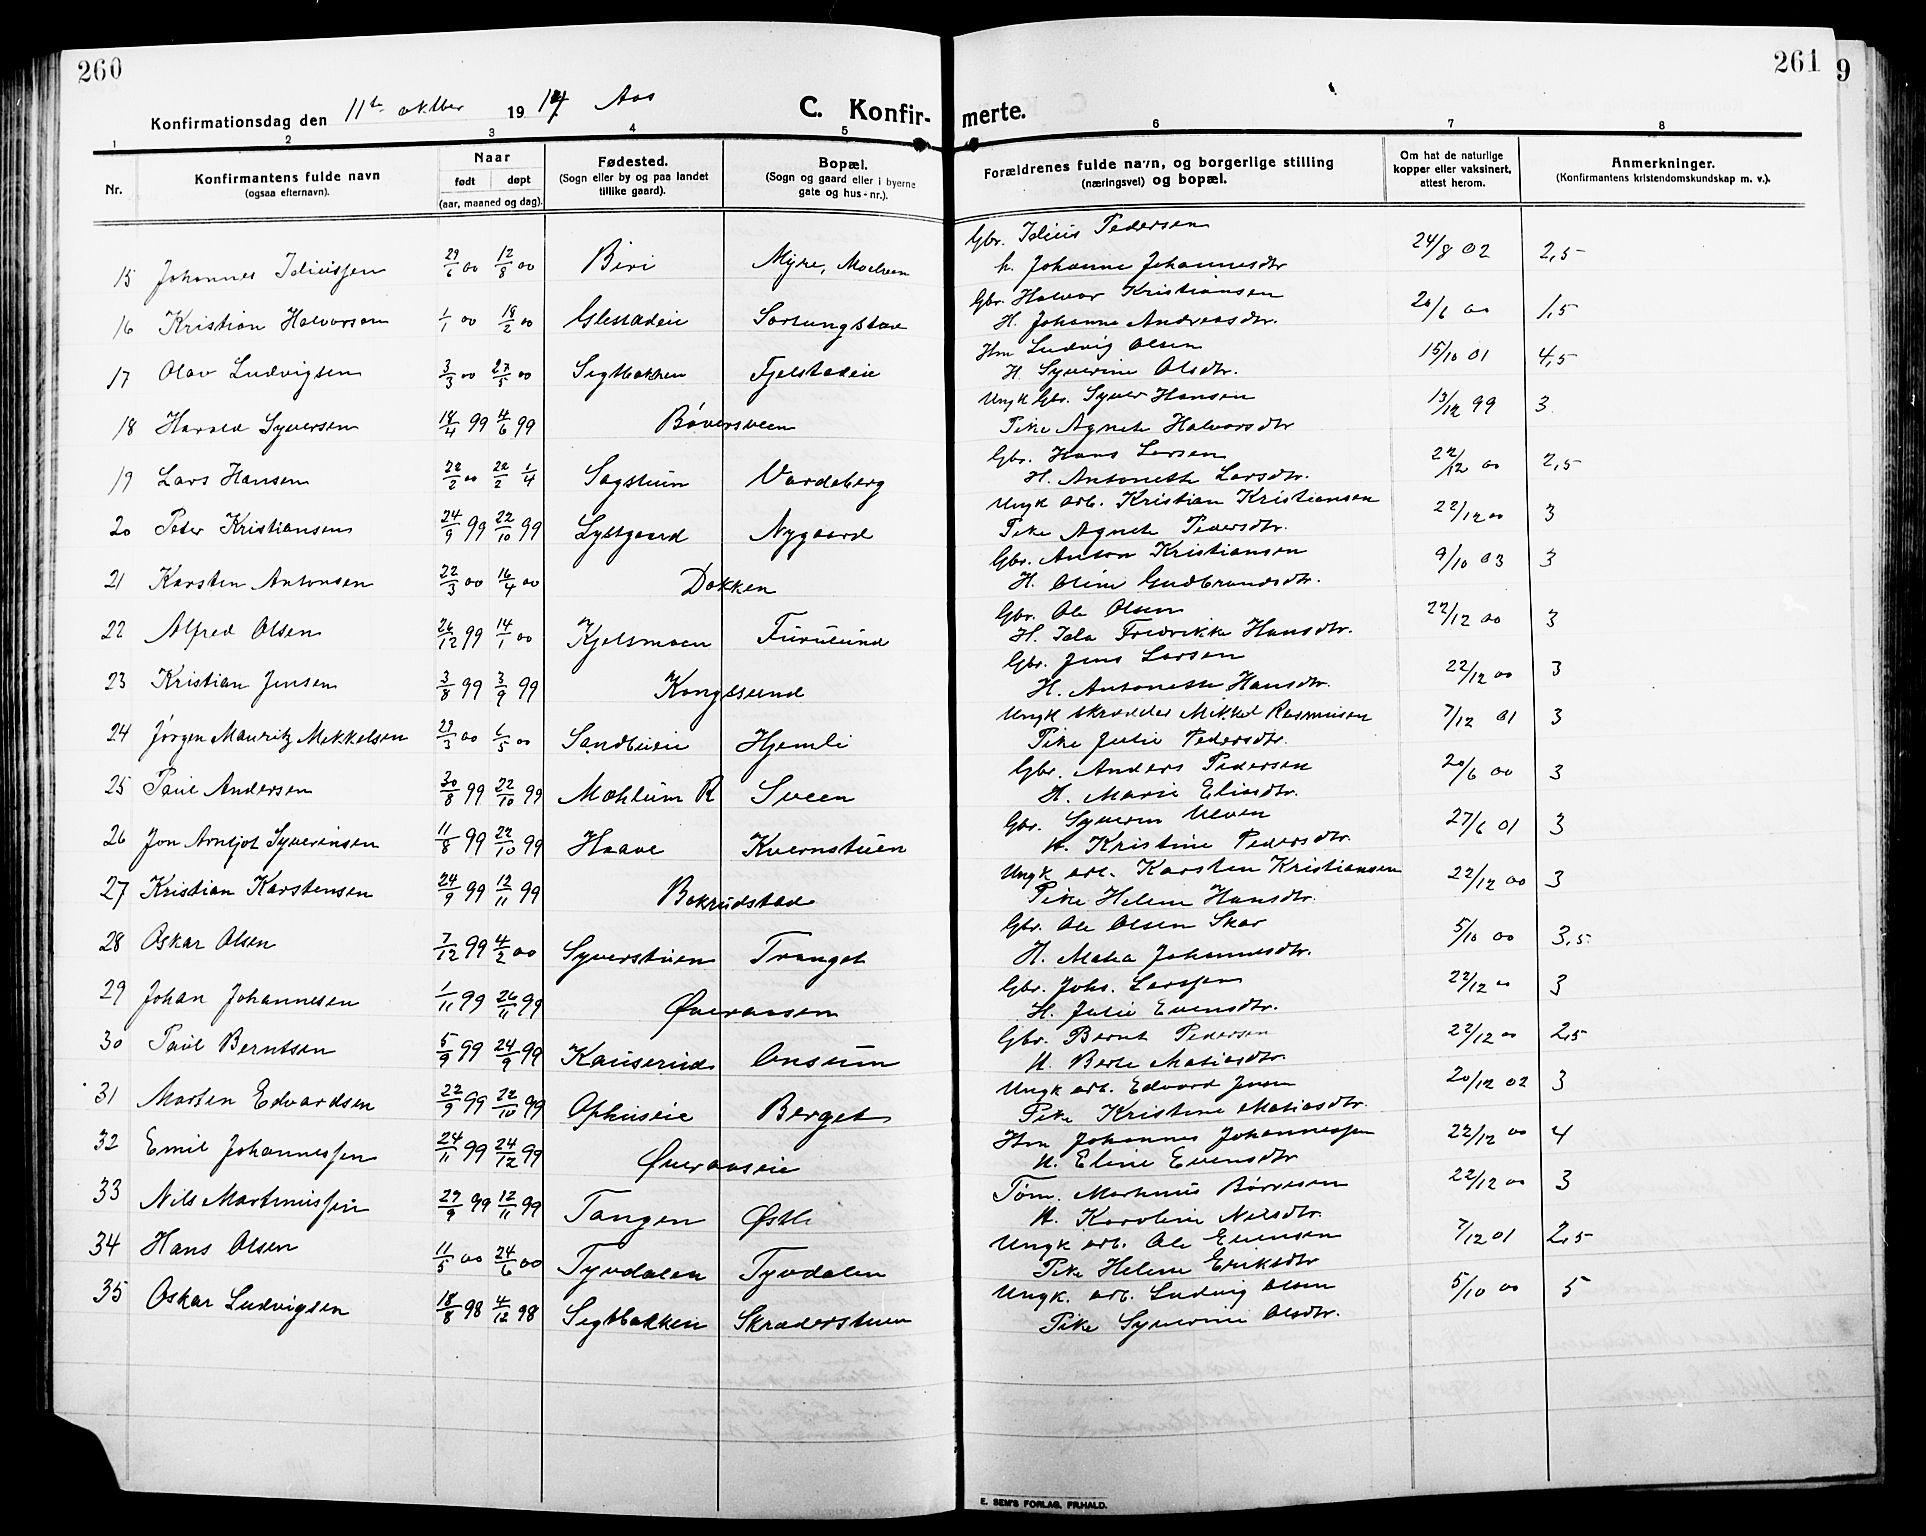 260
261
9
Konfirmationsdag den 11te oktber 1914 Aas
C. Konfir- merte.
1 2 3 4 5 6 7 8
Nr.
Konfirmantens fulde navn
(ogsaa efternavn).
Naar
født døpt
(aar, maaned og dag).
Fødested.
(Sogn eller by og paa landet
tillike gaard).
Bopæl.
(Sogn og gaard eller i byerne
gate og hus-nr.).
Forældrenes fulde navn, og borgerlige stilling
(næringsvei) og bopæl.
Om hat de naturlige
kopper eller vaksinert,
attest herom.
Anmerkninger.
(Konfirmantens kristendomskundskap m. v.).
Gbr. Idius Pedersen
15 Johannes Idiussen 29/6 00 12/8 00 Biri Myhre, Moelven h. Johanne Johannesdtr 24/8 02 2,5
Gbr. Halvor Kristiansen
16 Kristian Halvorsen 1/1 00 18/2 00 Glestadeie H. Johanne Andreasdtr. 20/6 00 1,5
Hm Ludvig Olsen
17 Olav Ludvigsen 3/3 00 27/5 00 Sigtbakken Fjelstadeie H. Syverine Olsdtr. 15/10 01 4,5
Ungk Gbr. Syver Hansen
18 Harald Syversen 18/4 99 4/6 99 Bøversveen Pike Agnete Halvorsdtr 13/12 99 3
Gbr. Hans Larsen
19 Lars Hansen 22/2 00 22/2 1/4 Sagstuen Vardeberg H. Antonette Larsdtr. 22/12 00 2,5
Ungk arb. Kristian Kristiansen
20 Peder Kristiansen 24/9 99 22/10 99 Lystgaard Nygaard Pike Agnete Pedersdtr. 22/12 00 3
Gbr. Anton Kristiansen
21 Karsten Antonsen 22/3 00 16/4 00 Dokken H. Oline Gudbrandsdtr. 9/10 03 3
Gbr. Ole Olsen
22 Alfred Olsen 26/12 99 14/1 00 Kjelsmoen Furulund H. Ida Fredrikke Hansdtr. 22/12 00 3
Gbr. Jens Larsen
23 Kristian Jensen 3/8 99 3/9 99 Kongssund H. Antonette Hansdtr. 22/12 00 3
Ungk skrædder Mikkel Rasmusen
24 Jørgen Mauritz Mikkelsen 29/3 00 6/5 00 Sandbueie Hjemli Pike Julie Pedersdtr. 7/12 01 3
Gbr. Anders Pedersen
25 Paul Andersen 30/8 99 22/10 99 Mæhlum R Sveen H. Marie Eliasdtr. 20/6 00 3
Gbr. Syverin Ulven
26 Jon Arntjot Syverinsen 11/8 99 22/10 99 Haave Kvernstuen H. Kristine Pedersdtr. 27/6 01 3
Ungk arb. Karsten Kristiansen
27 Kristian Karstensen 24/9 99 12/11 99 Bokrudstad Pike Helene Hansdtr. 22/12 00 3
Gbr. Ole Olsen Skar
28 Oskar Olsen 7/12 99 4/2 00 Syverstuen Tranget H. Matea Johannesdtr. 5/10 00 3,5
Gbr. Johs. Larssen
29 Johan Johannesen 1/11 99 26/11 99 Øveraasen H. Julie Evensdtr. 22/12 00 3
Gbr. Bernt Pedersen
30 Paul Berntsen 5/9 99 24/9 99 Kauserud Onsum H. Berte Matiasdtr. 22/12 00 2,5
Ungk arb. Edvard Jensen
31 Morten Edvardsen 22/9 99 22/10 99 Ophuseie Berget Pike Kristine Matiasdtr. 20/12 02 3
Hm Johannes Johannessen
32 Emil Johannessen 24/11 99 24/12 99 Øveraaseie H. Eline Evensdtr 22/12 00 4
Tøm. Martinus Børresen
33 Nils Martinussen 29/9 99 12/11 99 Tangen Østli H. Karoline Nilsdtr. 22/12 00 3
Ungk arb. Ole Evensen
34 Hans Olsen 11/5 00 24/6 00 Tyvdalen Tyvdalen Pike Helene Eriksdtr 7/12 01 2,5
Ungk. arb. Ludvig Olsen
35 Oskar Ludvigsen 18/8 98 4/12 98 Sigtbakken Skræderstuen Pike Syverine Olsdtr. 5/10 00 5
E. SEM'S FORLAG, FR.HALD.